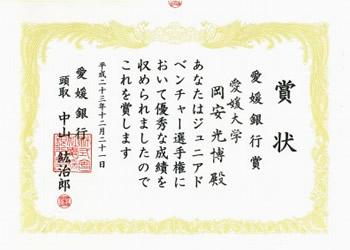 賞状
愛媛銀行賞
愛媛大学
岡安光博殿
あなたはジュニアド
ベンチャー選手権に
おいて優秀な成績を
収められましたので
これを賞します
平成二十三年十二月二十一日
愛媛銀行
頭取 中山紘治郎